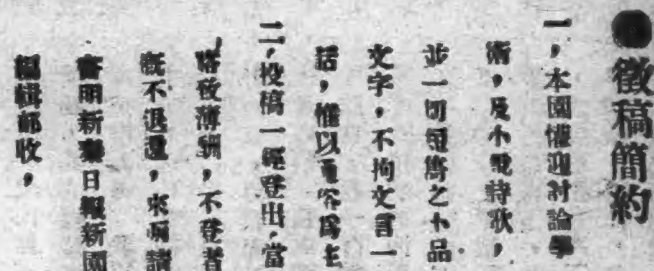 ●徵稿簡約
一，本園懽迎討論學
術，及小說詩歌，
並一切短雋之小品
文字，不拘文言一
話，惟以重客爲主
二，投稿一經登出，當
略致薄酬，不登者
概不退還，來稿請
書明新日報新園
編輯部收，